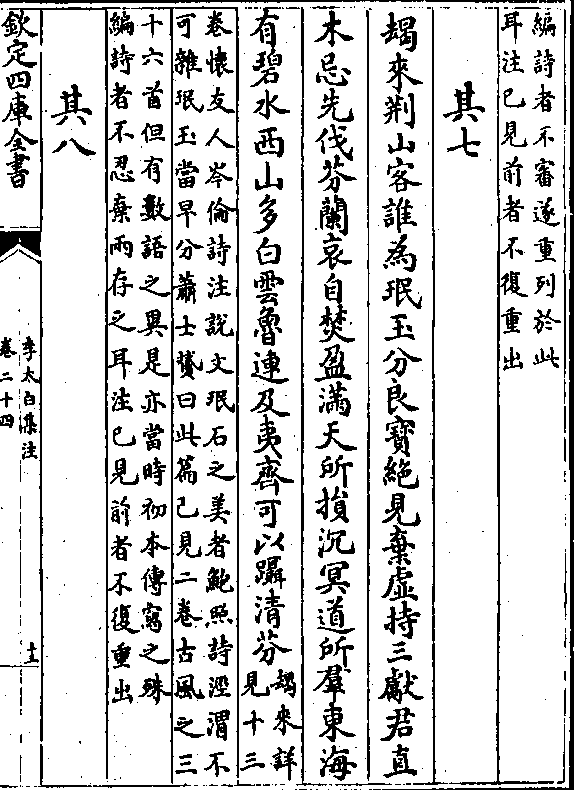 編詩者不審遂重列於此
耳注已見前者不復重出
其七
朅來荆山客誰為珉玉分良寶絶見棄虛持三獻君直
木忌先伐芬蘭哀自焚盈滿天所損沉冥道所羣東海
有碧水西山多白雲魯連及夷齊可以躡清芬
朅來詳
見十三
卷懷友人岑倫詩注說文珉石之美者鮑照詩涇渭不
可雜珉玉當早分蕭士贇曰此篇已見二卷古風之三
十六首但有數語之異是亦當時初本傳寫之殊
編詩者不忍棄兩存之耳注已見前者不復重出
其八
欽定四庫全書
李太白集注
卷二十四
十三